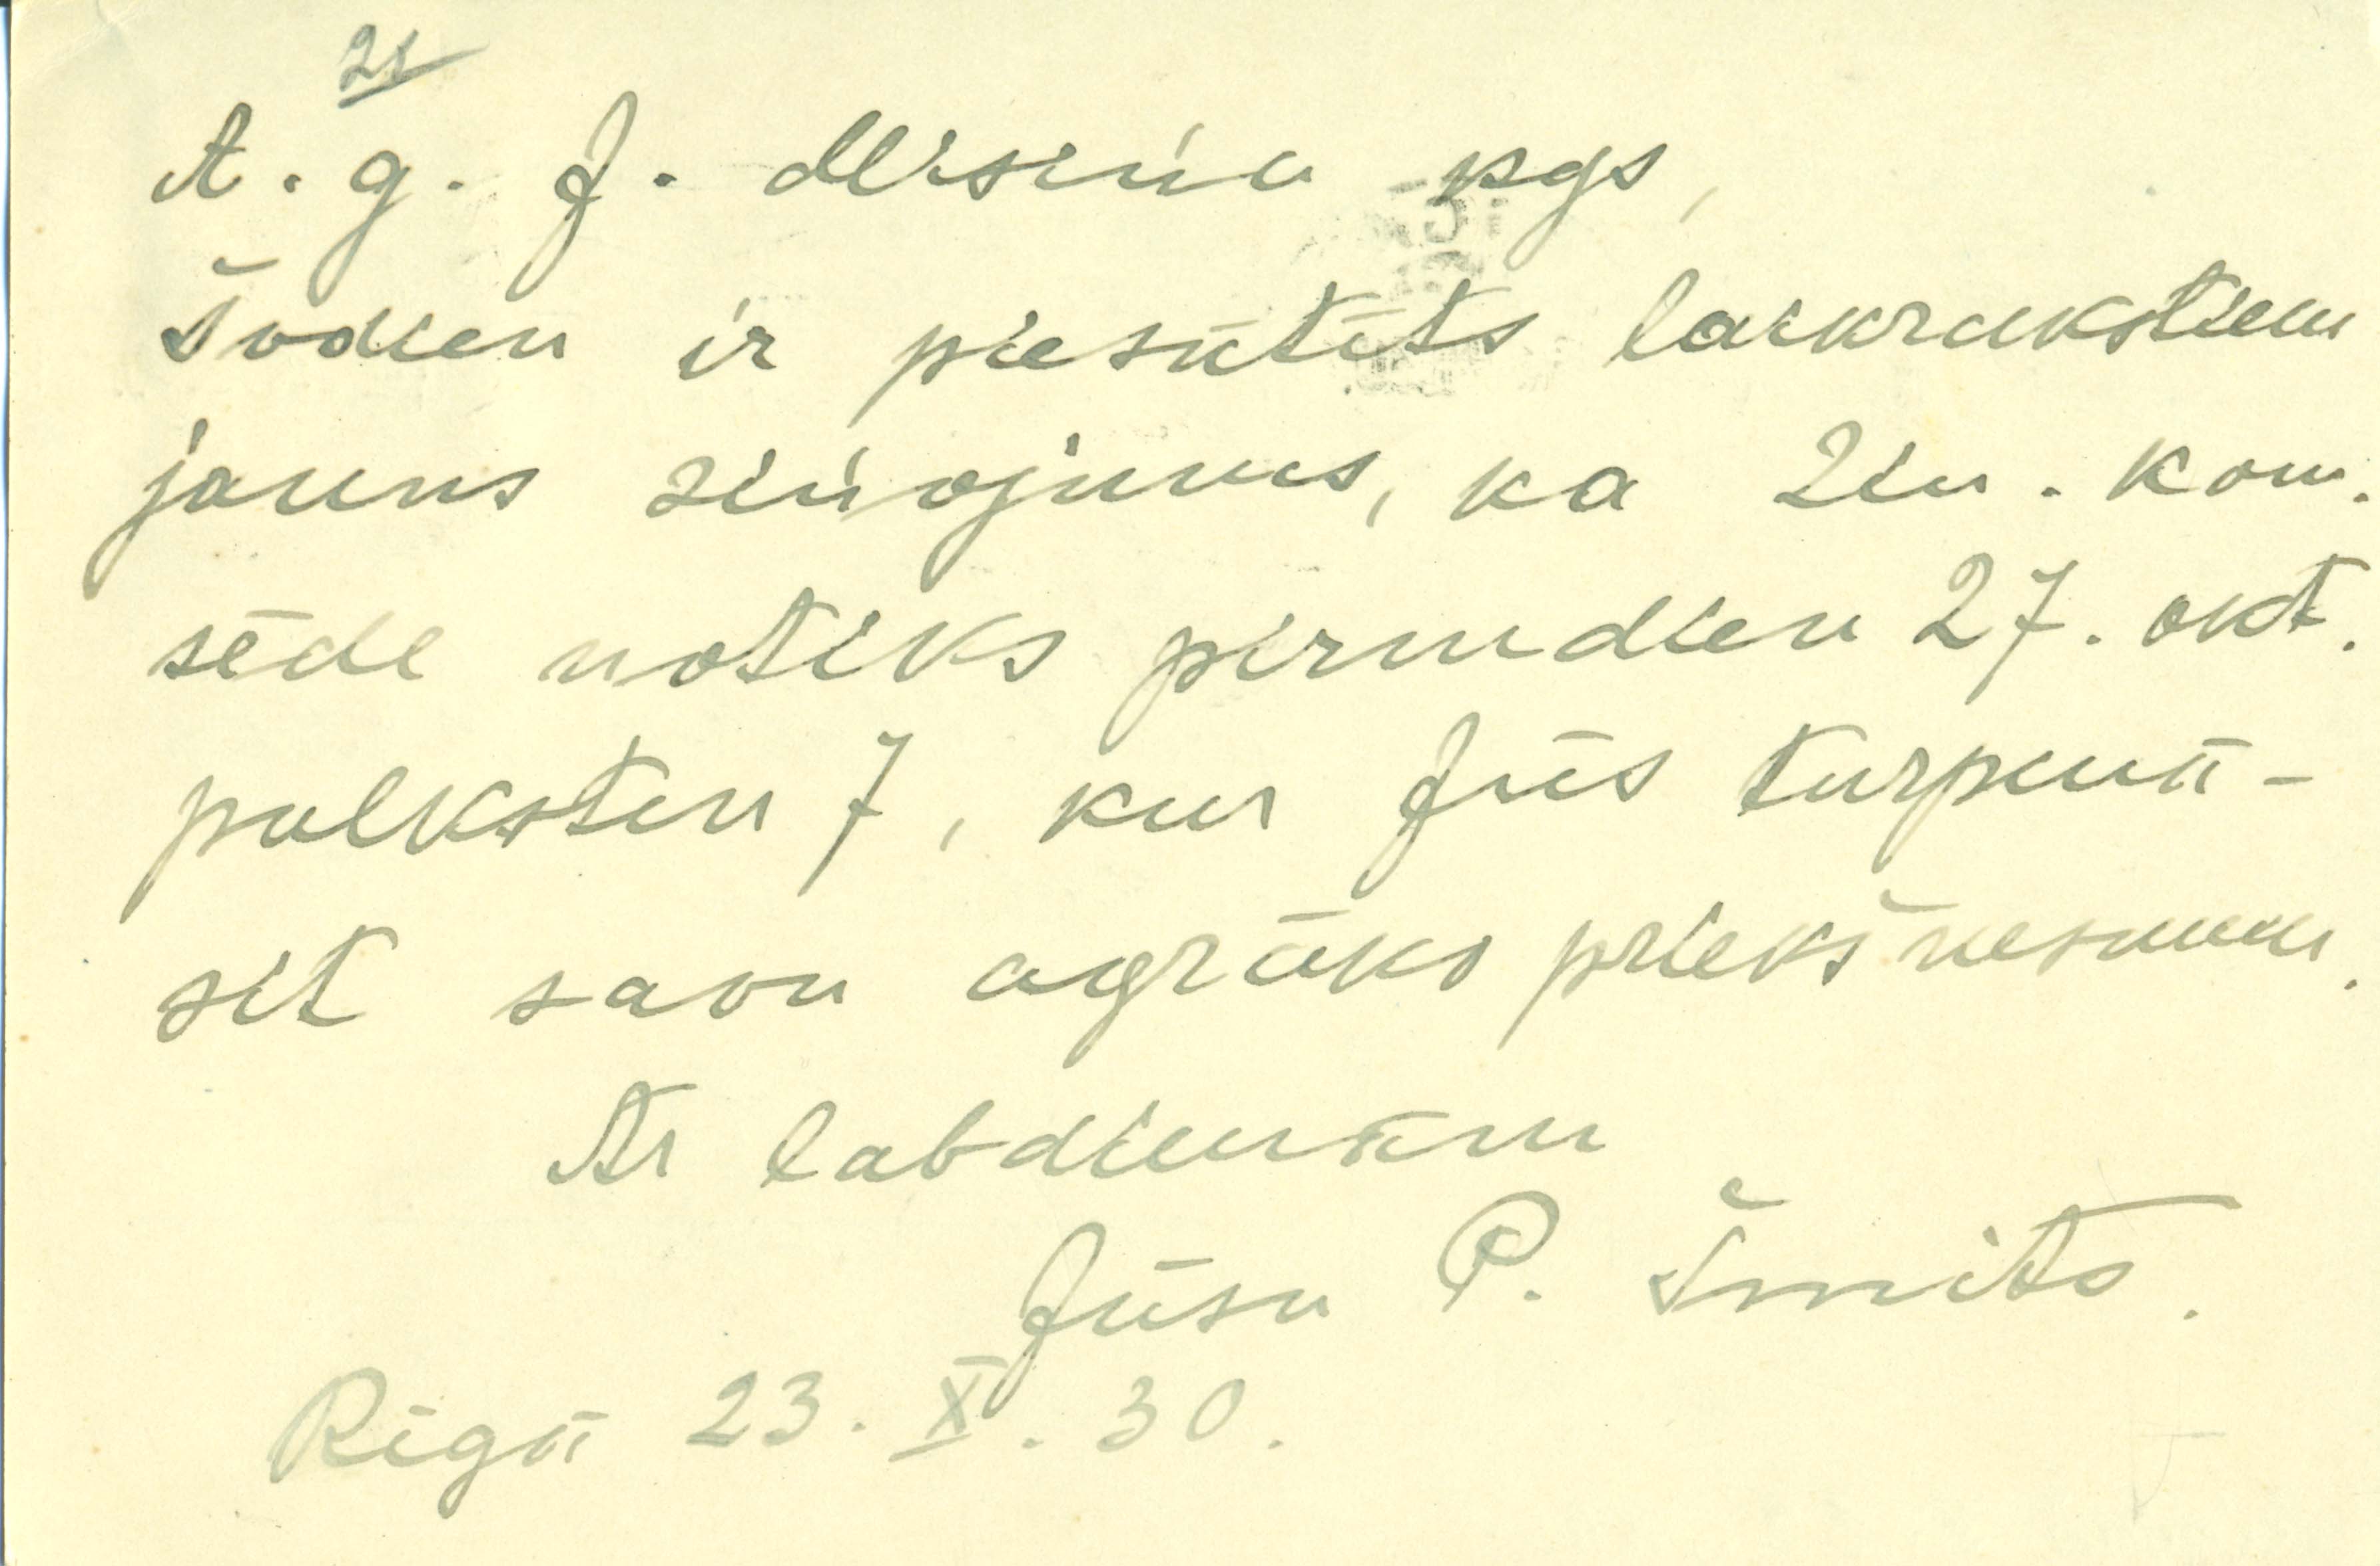 21
A. g. J. Misiņa kgs,
Šodien ir piesūtīts laikrakstiem
jauns ziņojums, ka Zin. kom.
sēde notiks pirmdien 27. okt.
pulksten 7, kur Jūs turpinā-
sit savu agrāko priekšnesumu.
Ar labdienām
Jūsu P. Šmits.
Rīgā 23. X. 30.